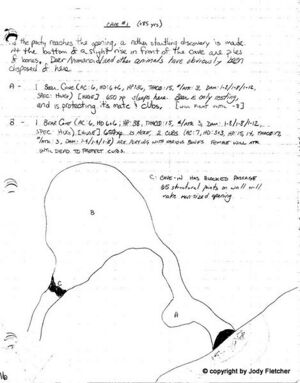 CAVE #1 (~85 yrs)
If the party reaches the opening, a rather startling discovery is made
At the bottom of a slight rise in front of the cave are piles
of bones, Deer, Humanoid, and other animals have obviously been
disposed of here.
A - 1 BEAR, CAVE (AC: 6, HD: 6+6, HP: 36, THAC0: 13, #/ATK: 3, DAM: 1-8/1-8/1-12,
SPEC: HUGS) 650 XP sleeps here. Bear is only resting,
and is protecting its mate & CUBS.
B - 1 BEAR CAVE (AC: 6, HD: 6+6, HP: 38, THAC0: 13, #/ATK: 3, DAM: 1-8/1-8/1-12,
SPEC: HUGS) 650xp is HERE, 2 CUBS
#/ATK 3, ARE PLAYING WITH VARIOUS BONES FEMALE WILL ATK
UNTIL DEAD TO PROTECT CUBS.
C: CAVE-IN HAS BLOCKED PASSAGE
25 structural points on wall will
make man-sized opening
B
C
A
16
© copyright by Jody Fletcher